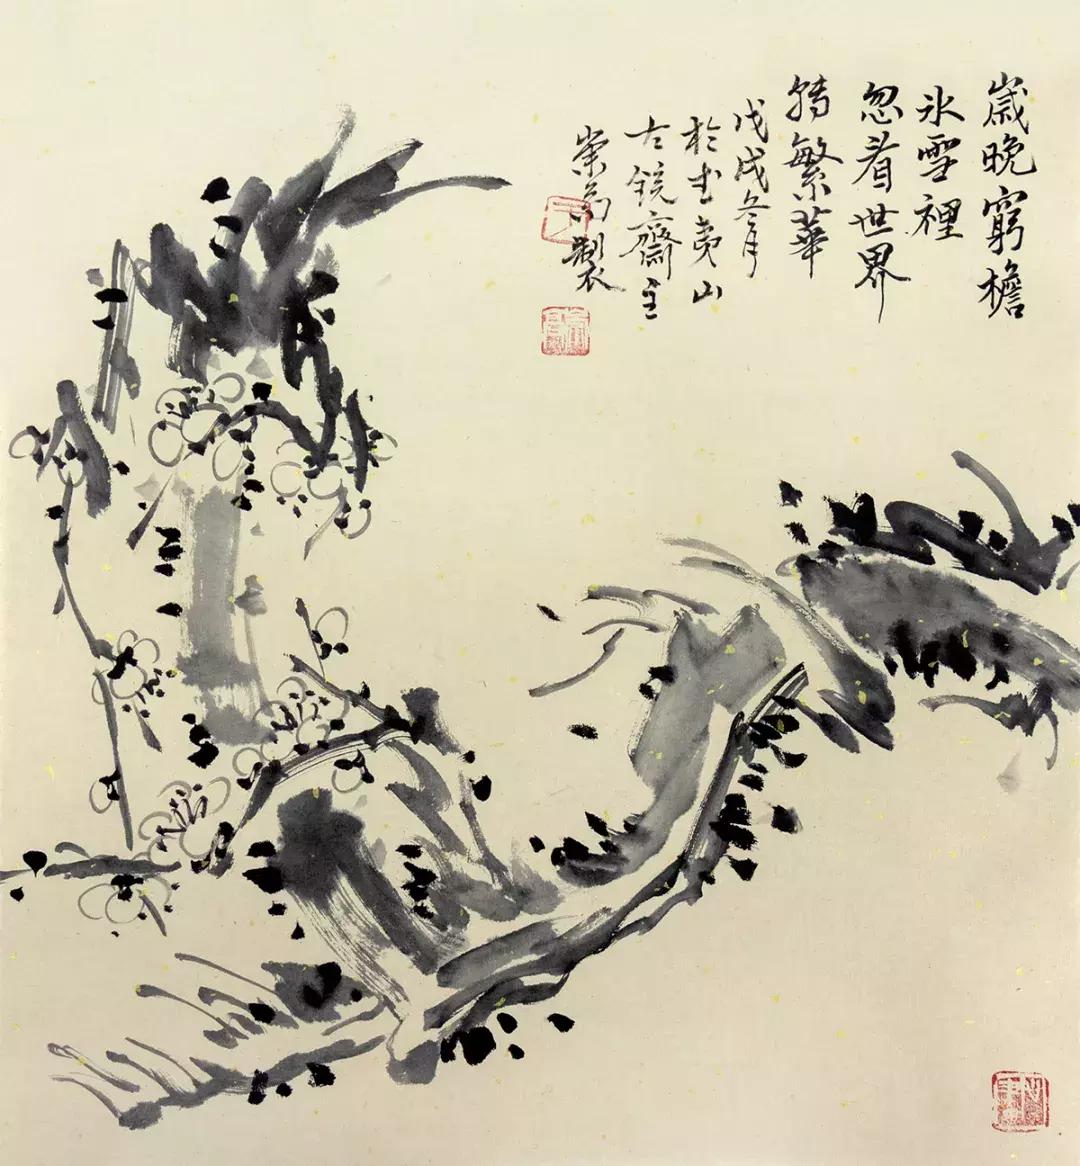 歲晚窮檐
氷雪裡
忽看世界
轉繁華
戊戌冬月
於武夷山
古鏡齋主
崇為製